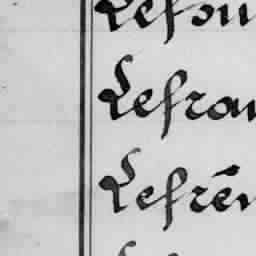 Lefou
Lefran
Lefrén